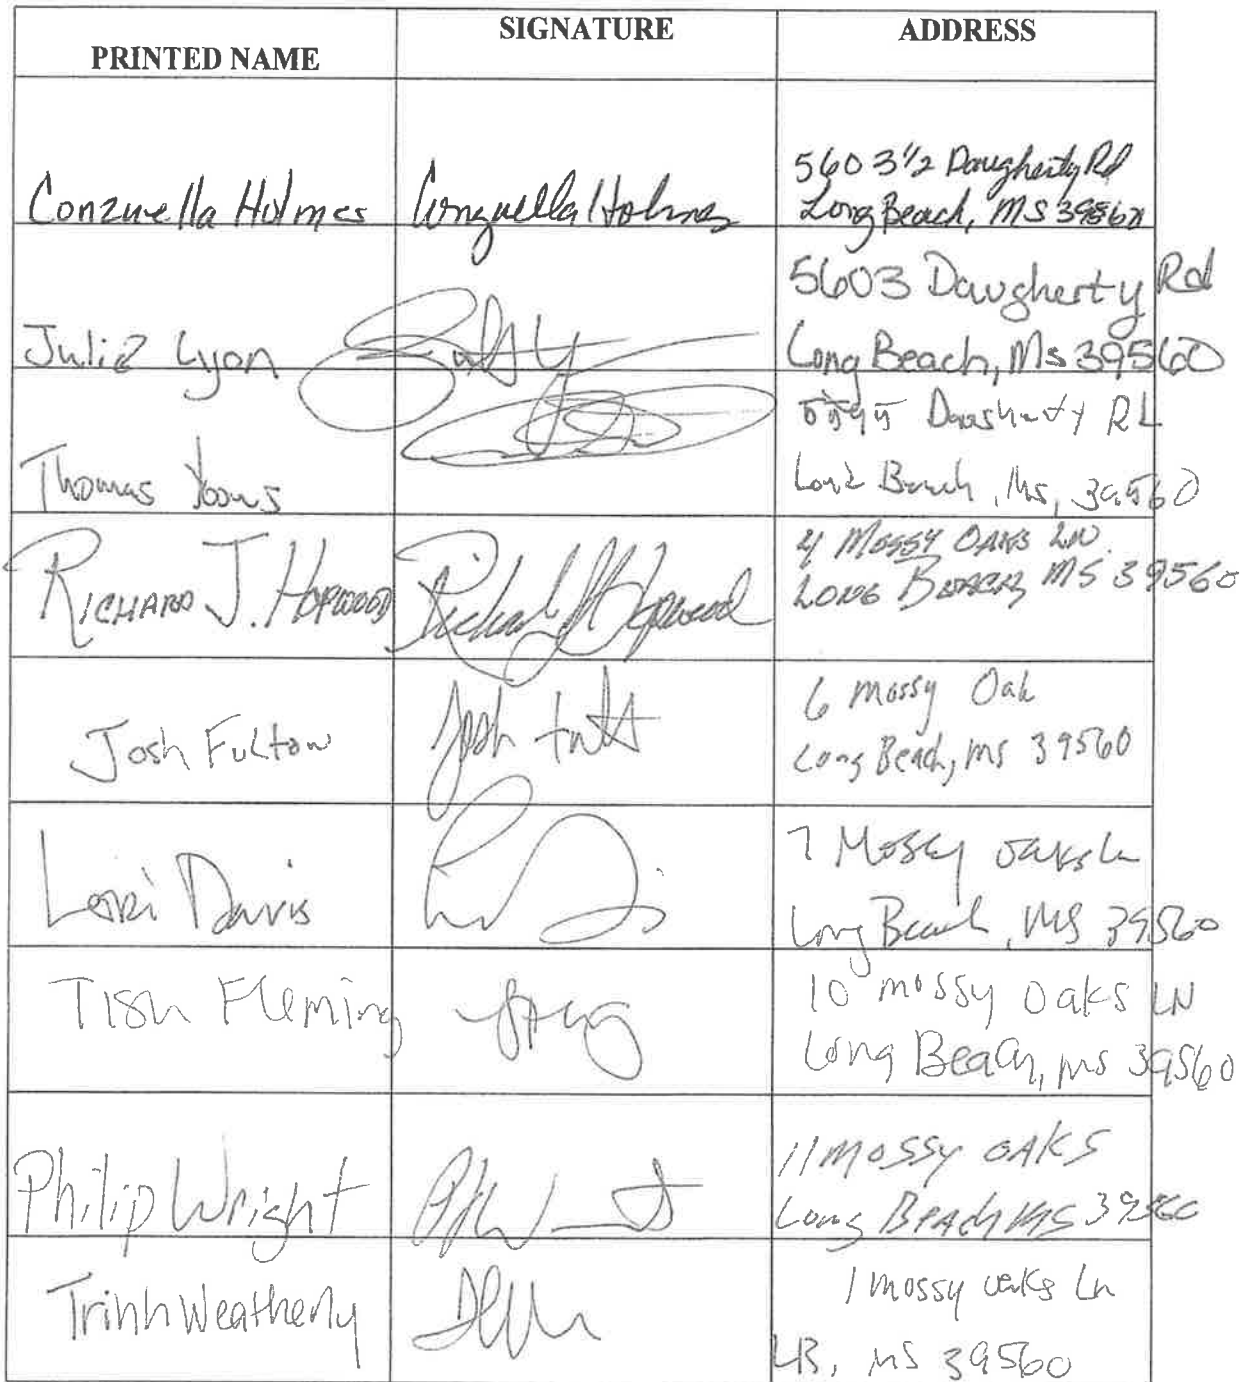 PRINTED NAME
SIGNATURE
ADDRESS
Conzuella Holmes
Conzuella Holmes
5603 1/2 Daugherty Rd
Long Beach, MS 39560
Julie Lyon
5603 Daugherty Rd
Long Beach, Ms 39560
Thomas
Daugherty Rd
Long Beach, Ms, 39560
RICHARD J. HOPWOOD
Richard J Hopwood
4 MOSSY OAKS LN.
LONG BEACH MS 39560
Josh Fulton
Josh
6 Mossy Oak
Long Beach, MS 39560
Lori Davis
7 Mossy Oaks Ln
Long Beach, MS 39560
Tish Fleming
10 mossy Oaks LN
Long Beach, MS 39560
Philip Wright
11 MOSSY OAKS
Long BEACH MS 39560
Trinh Weatherly
1 mossy oaks Ln
LB, MS 39560